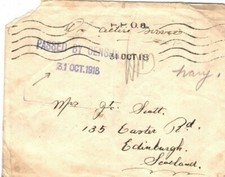 F.P.O. 8.
On Active Service
PASSED BY CENSOR
31 OCT 18
31 OCT. 1918
Navy.
Mrs Jn. Scott.
135 Easter Rd.
Edinburgh.
Scotland.